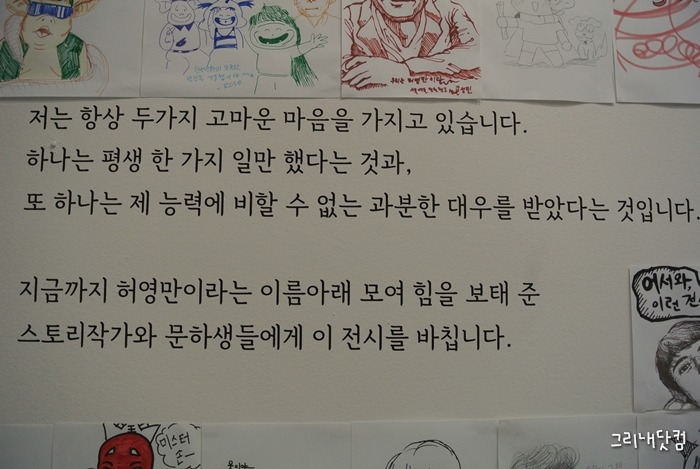 저는 항상 두가지 고마운 마음을 가지고 있습니다.
하나는 평생 한 가지 일만 했다는 것과,
또 하나는 제 능력에 비할 수 없는 과분한 대우를 받았다는 것입니다.
지금까지 허영만이라는 이름아래 모여 힘을 보태 준
스토리작가와 문하생들에게 이 전시를 바칩니다.
어서와,
이런 건
미스터
손
그리내닷컴